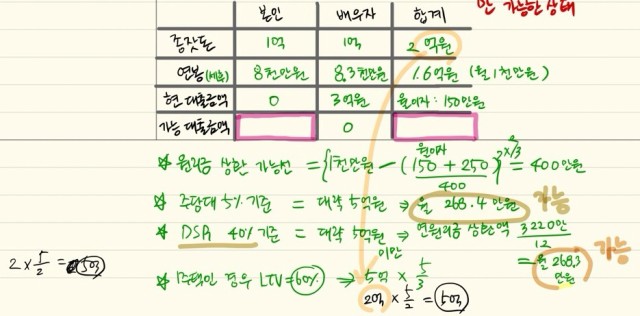 만 가능한 상태
본인 배우자 합계
종잣돈 1억 1억 2억원
연봉(세후) 8천만원 8.3천만원 1.6억원 (월 1천만원)
현 대출금액 0 3억원 월이자: 150만원
가능 대출금액 0
월이자
※ 원리금 상환 가능선 = {1천만원 - (150 + 250)} × 2/3 = 400만원
400
※ 주담대 5% 기준 = 대략 5억원 ⇒ 월 268.4만원 가능
※ DSR 40% 기준 = 대략 5억원 ⇒ 연원리금 상환액 3220만/12 가능
미만
= 월 268.3만원
※ 1주택인 경우 LTV = 60% ⇒ 5억 × 5/3
2억 × 5/2 = 5억
2 × 5/2 = 5억